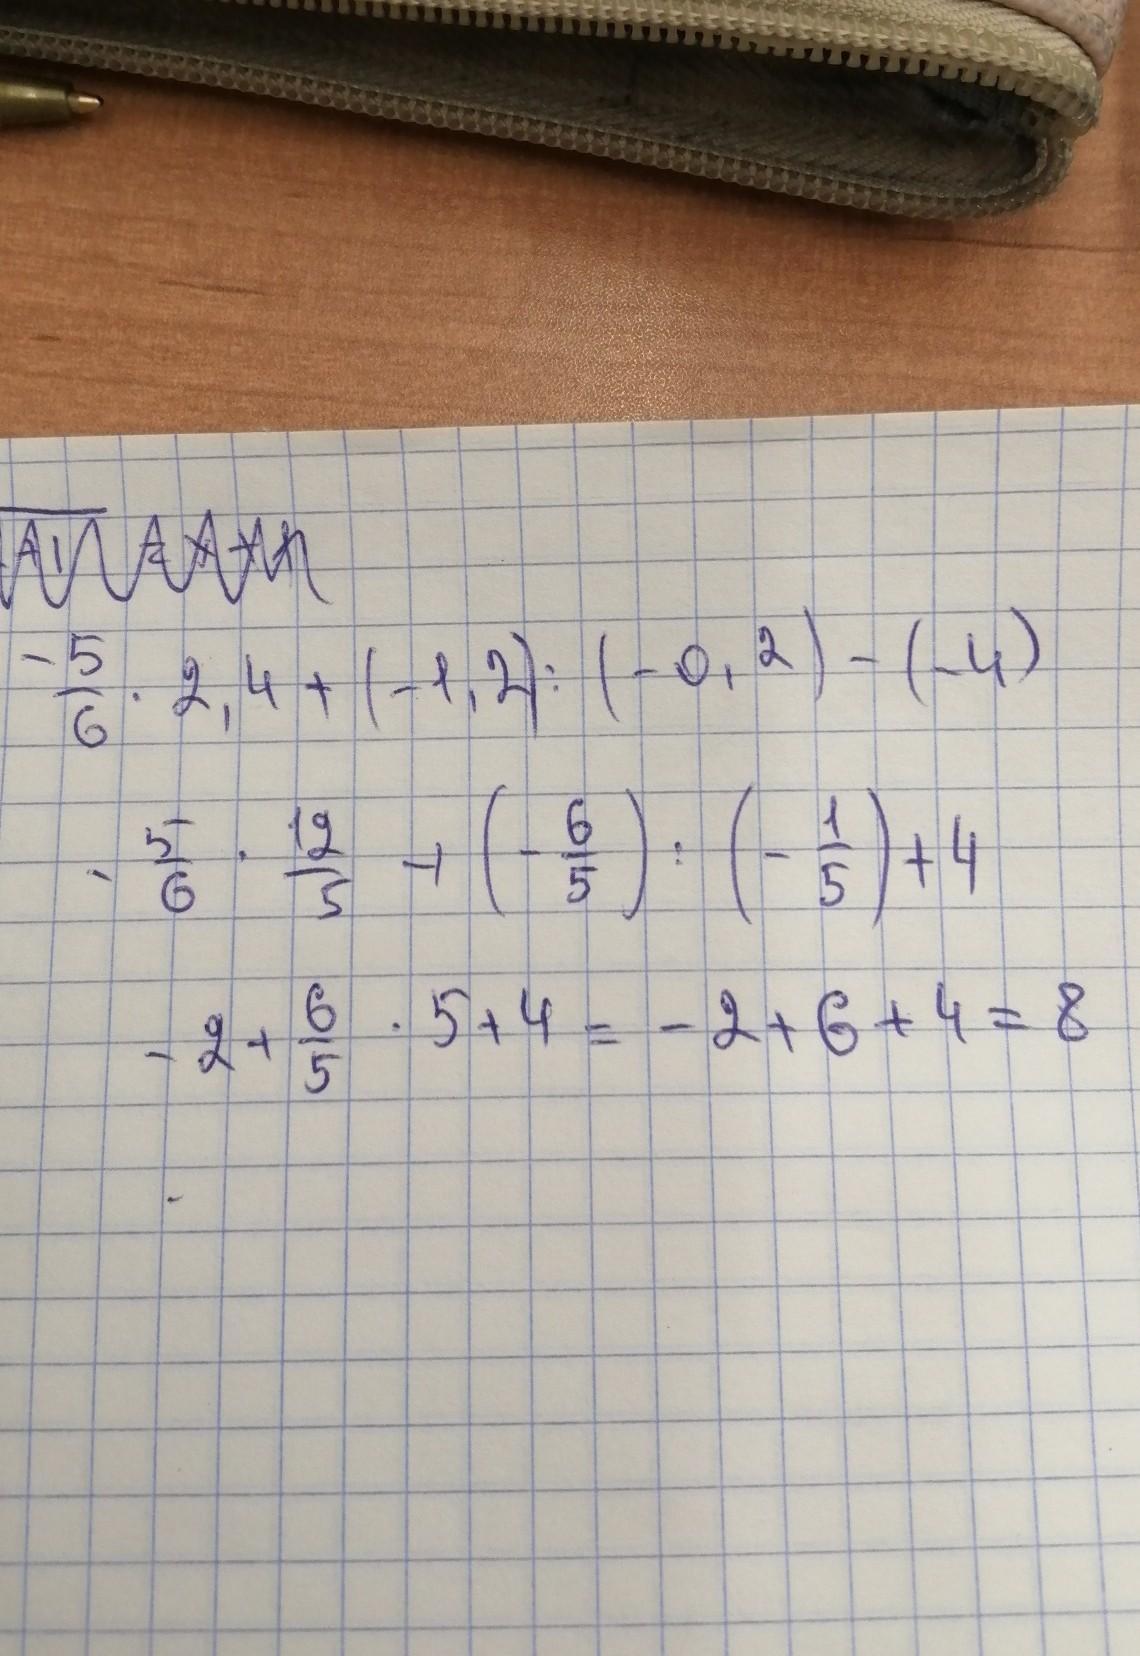 -5/6 · 2,4 + (-1,2) : (-0,2) - (-4)
- 5/6 · 12/5 + (- 6/5) : (- 1/5) + 4
- 2 + 6/5 · 5 + 4 = - 2 + 6 + 4 = 8